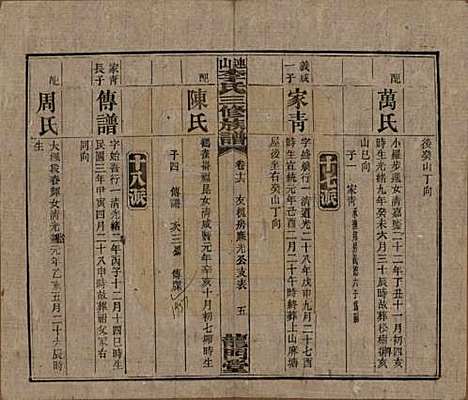 後癸山丁向
配
萬氏
小羅步遠女清嘉慶二十二年丁丑十一月初四亥
時生光緒九年癸未六月三十辰時故葬松樹
山巳向
子 家青
十七派
義成
一子
家青
字 行一清道光二十八年戊申九月二十七酉
時生宣統元年己酉二月二十午時終葬上山麻塘
屋後午右癸山丁向
配
陳氏
福昆女清咸豐元年辛亥十月初七卯時生
子四 傳譜 次三 傳
連山李氏三修族譜
卷十六 友 房應光公支表 五
龍門堂
十八派
家青
長子
傳譜
字始 行一清光緒二年丙子十二月十四巳時生
民國三年甲寅四月二十八申時故葬祖父家右
同向
配
周氏
大 段春輝女清光緒元年乙亥五月二十六辰時
生